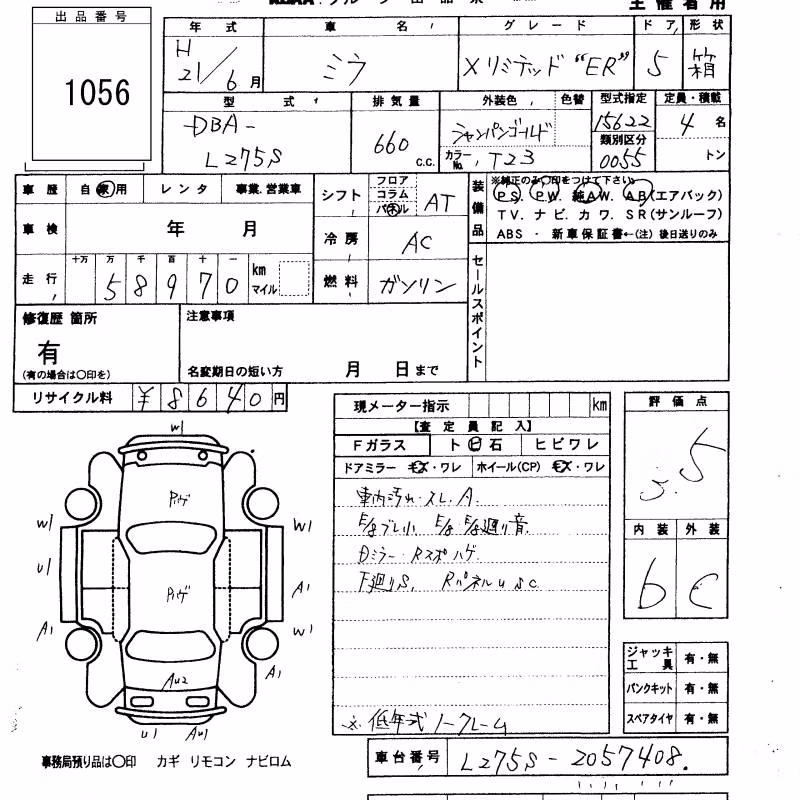 主催者用
出品番号
1056
年式 車名 グレード ドア 形状
H21/6月 ミラ Xリミテッド "ER" 5 箱
型式 排気量 外装色 色替 型式指定 定員・積載
DBA-
L275S
660 c.c.
シャンパンゴールド
カラーNo. T23
15622
類別区分
0055
4名
トン
車歴 自家用 レンタ 事業.営業車
シフト フロア コラム パネル AT
車検 年 月
冷房 AC
走行 十万 万 千 百 十 一 km マイル
58970
燃料 ガソリン
装備品
※純正のみ〇印をつけて下さい。
PS. PW. 純AW. AB(エアバック)
TV. ナビ. カワ. SR(サンルーフ)
ABS ・ 新車保証書←(注)後日送りのみ
セールスポイント
修復歴 箇所
有
(有の場合は〇印を)
注意事項
名変期日の短い方 月 日まで
リサイクル料 ¥8640円
現メーター指示 km
【査定員記入】
Fガラス ト日石 ヒビワレ
ドアミラー キズ・ワレ ホイール(CP) キズ・ワレ
車内汚れ・スレ.A.
E/gブレ小 E/g E/g廻り音.
Dミラー・Rスポハゲ.
F廻りS, RパネルUSC
※低年式ノークレーム
評価点
3.5
内装 外装
b C
ジャッキ工具 有・無
パンクキット 有・無
スペアタイヤ 有・無
W1
Pハゲ
W1 W1
U1
Pハゲ
A1
A1 W1
A1
AU2
U1 AU1
事務局預り品は〇印 カギ リモコン ナビロム
車台番号 L275S-2057408.